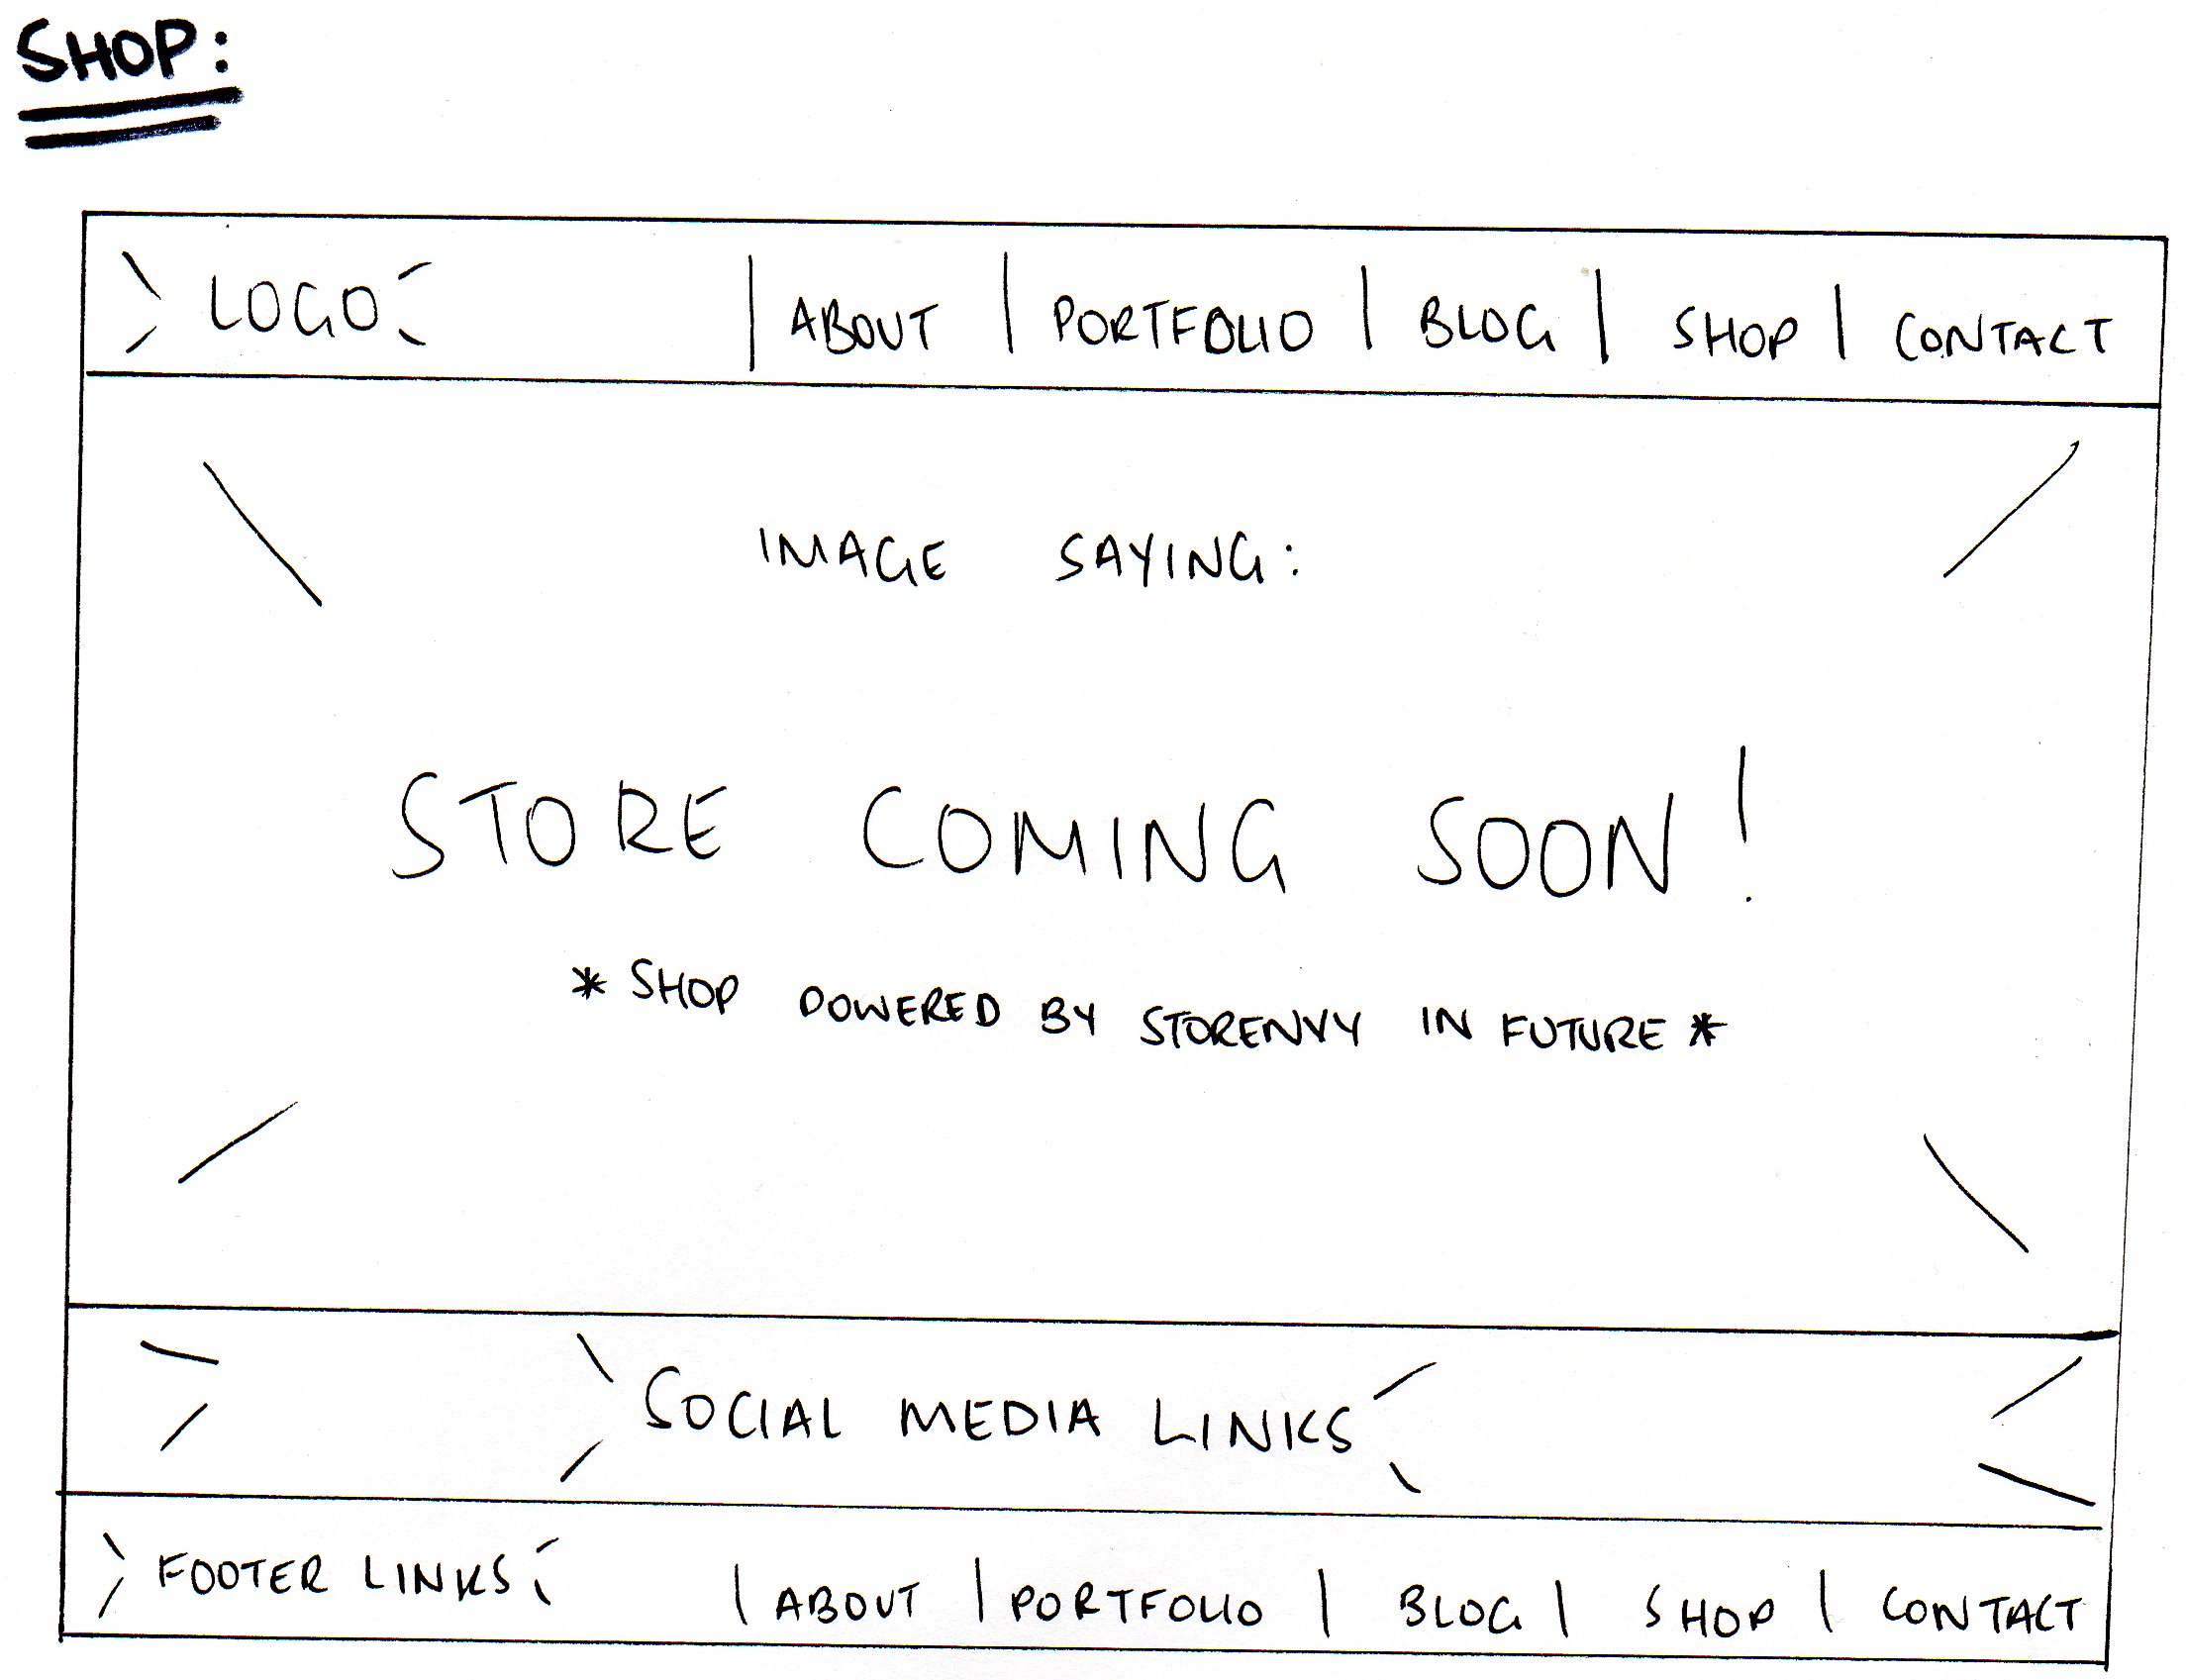 SHOP:
LOGO | ABOUT | PORTFOLIO | BLOG | SHOP | CONTACT
IMAGE SAYING:
STORE COMING SOON!
* SHOP POWERED BY STORENVY IN FUTURE *
SOCIAL MEDIA LINKS
FOOTER LINKS | ABOUT | PORTFOLIO | BLOG | SHOP | CONTACT